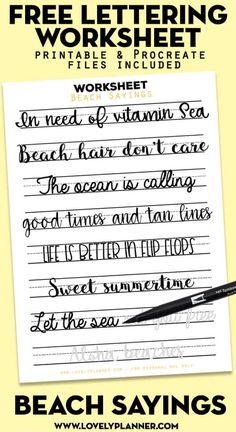 FREE LETTERING
WORKSHEET
PRINTABLE & PROCREATE
FILES INCLUDED
WORKSHEET
Beach Sayings
In need of vitamin Sea
Beach hair don't care
The ocean is calling
good times and tan lines
LIFE IS BETTER IN FLIP FLOPS
Sweet summertime
Let the sea set you free
Aloha beaches
WWW.LOVELYPLANNER.COM - FOR PERSONAL USE ONLY
BEACH SAYINGS
WWW.LOVELYPLANNER.COM